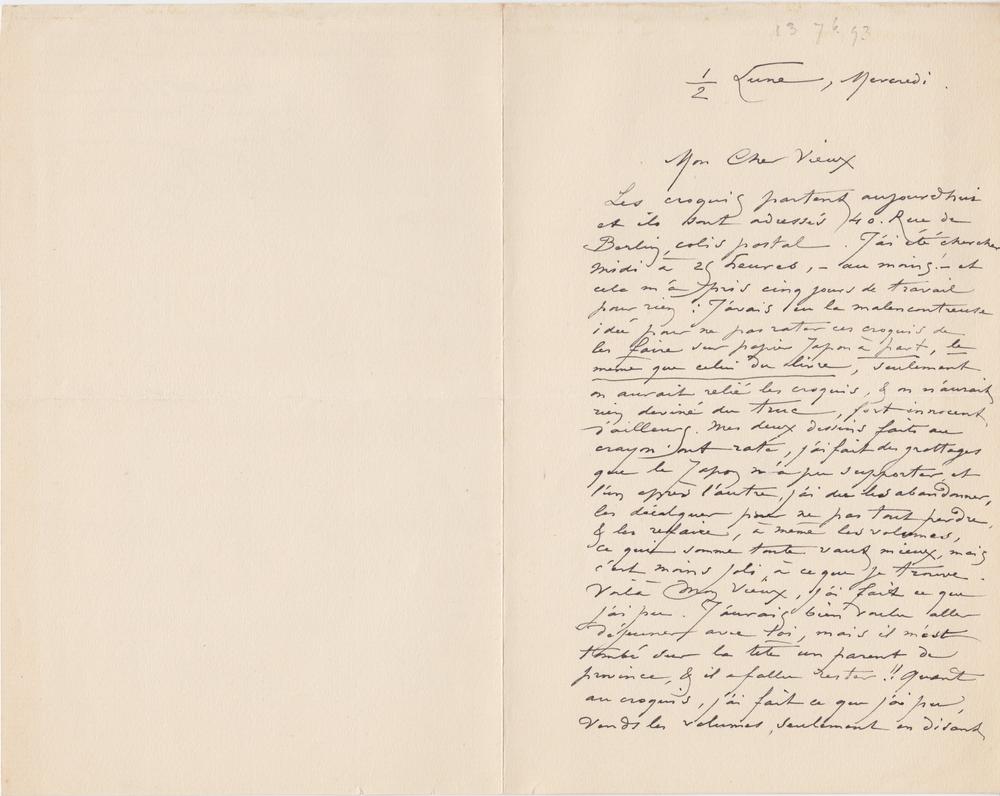 13 7b 93
1/2 Lune, Mercredi.
Mon Cher Vieux
Les croquis partent aujourd'hui
et ils sont adressés 40. Rue de
Berlin, colis postal. J'ai été chercher
midi à 25 heures, - au moins! - et
cela m'a pris cinq jours de travail
pour rien : J'avais eu la malencontreuse
idée pour ne pas rater ces croquis de
les faire sur papier Japon à part, le
même que celui du livre, seulement
on aurait relié les croquis, & on n'aurait
rien deviné du truc, fort innocent
d'ailleurs. Mes deux dessins faits au
crayon ont raté, j'ai fait des grattages
que le Japon n'a pu supporter, et
l'un après l'autre, j'ai dû les abandonner,
les décalquer pour ne pas tout perdre,
& les refaire, à même les volumes,
ce qui somme toute vaut mieux, mais
c'est moins joli, à ce que je trouve.
Voilà Mon Vieux, j'ai fait ce que
j'ai pu. J'aurais bien voulu aller
déjeuner avec toi, mais il m'est
tombé sur la tête un parent de
province, & il a fallu rester!! Quant
au croquis, j'ai fait ce que j'ai pu,
Vends les volumes, seulement en disant